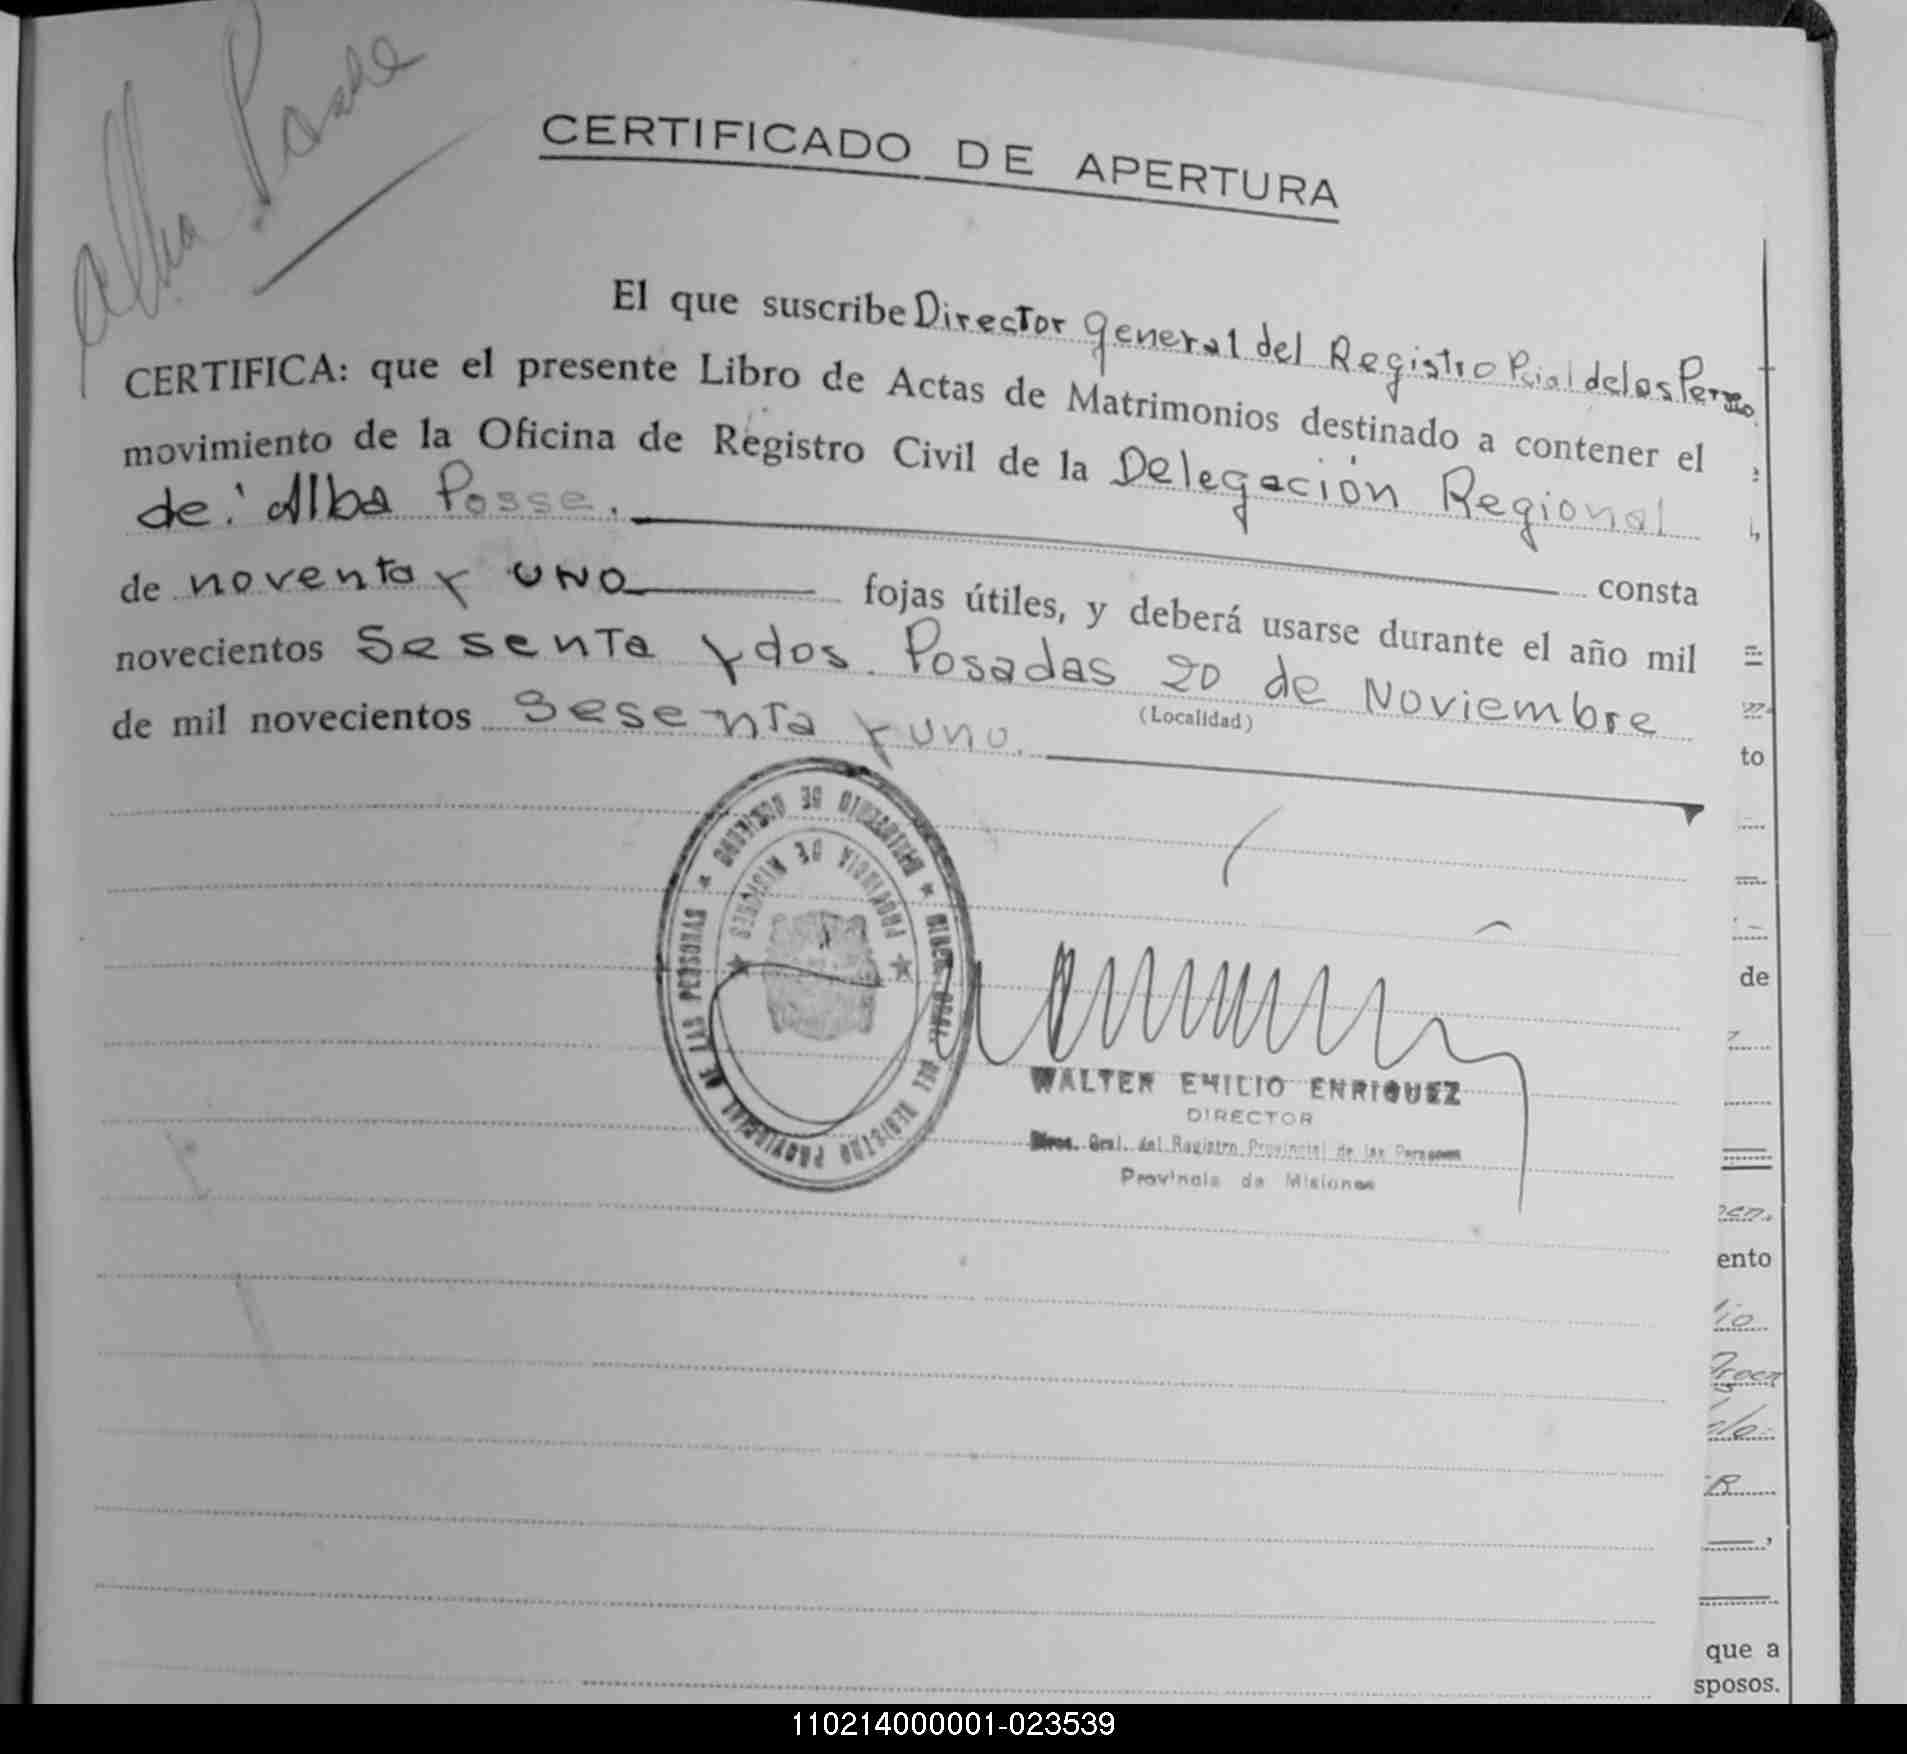 Alba Posse
CERTIFICADO DE APERTURA
El que suscribe Director general del Registro Pcial de las Person
CERTIFICA: que el presente Libro de Actas de Matrimonios destinado a contener el
movimiento de la Oficina de Registro Civil de la Delegación Regional
de: Alba Posse.
consta
de noventa y uno fojas útiles, y deberá usarse durante el año mil
novecientos Sesenta y dos. Posadas 20 de Noviembre
(Localidad)
de mil novecientos Sesenta y uno.
MINISTERIO DE GOBIERNO
DIREC. GRAL. DEL REGISTRO PROVINCIAL DE LAS PERSONAS
PROVINCIA DE MISIONES
WALTER EMILIO ENRIQUEZ
DIRECTOR
Direc. Gral. del Registro Provincial de las Personas
Provincia de Misiones
to
de
ento
que a
sposos.
110214000001-023539